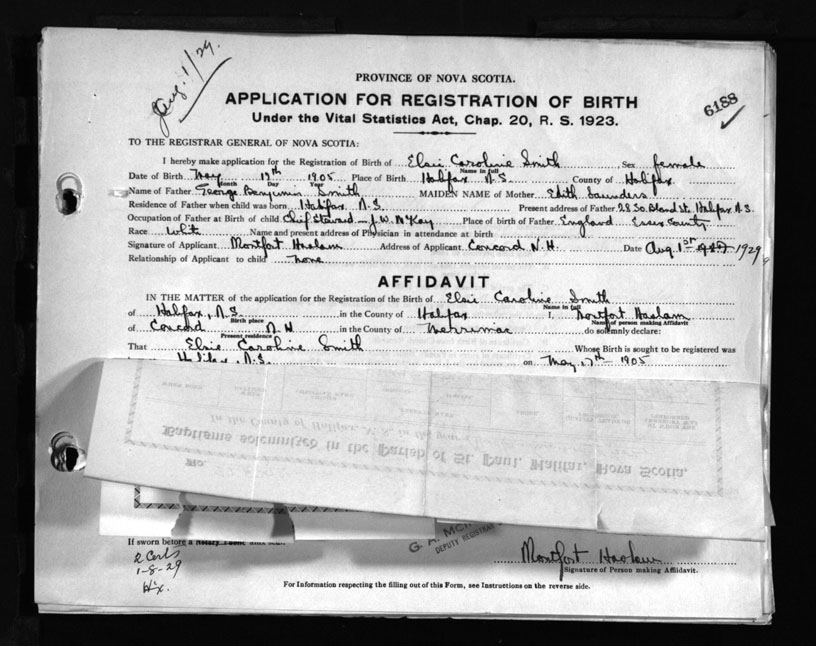 Aug. 1/29.
PROVINCE OF NOVA SCOTIA.
APPLICATION FOR REGISTRATION OF BIRTH
6188
Under the Vital Statistics Act, Chap. 20, R. S. 1923.
TO THE REGISTRAR GENERAL OF NOVA SCOTIA:
I hereby make application for the Registration of Birth of Elsie Caroline Smith Sex female
Name in full
Date of Birth May 17th 1905 Place of Birth Halifax N.S. County of Halifax
Month Day Year
Name of Father George Benjamin Smith MAIDEN NAME of Mother Edith Saunders
Residence of Father when child was born Halifax N.S. Present address of Father 28 Bland St. Halifax N.S.
Occupation of Father at Birth of child Chief Steward - J.W. McKay Place of birth of Father England Essex County
Race White Name and present address of Physician in attendance at birth
Signature of Applicant Montfort Haslam Address of Applicant Concord N.H. Date Aug 1st 1929
Relationship of Applicant to child none
AFFIDAVIT
IN THE MATTER of the application for the Registration of the Birth of Elsie Caroline Smith
Name in full
of Halifax, N.S. in the County of Halifax I, Montfort Haslam
Birth place Name of person making Affidavit
of Concord N H in the County of Merrimac do solemnly declare:
Present residence
That Elsie Caroline Smith Whose Birth is sought to be registered was
Halifax, N.S. on May 17th 1905
In the County of Halifax, N. S. in the year
Baptisms solemnized in the Parish of St. Paul, Halifax, Nova Scotia.
No.
If sworn before a Notary Public
G. A.
DEPUTY REGISTRAR
2 Certs
1-8-29
Hx.
Montfort Haslam
Signature of Person making Affidavit.
For Information respecting the filling out of this Form, see Instructions on the reverse side.